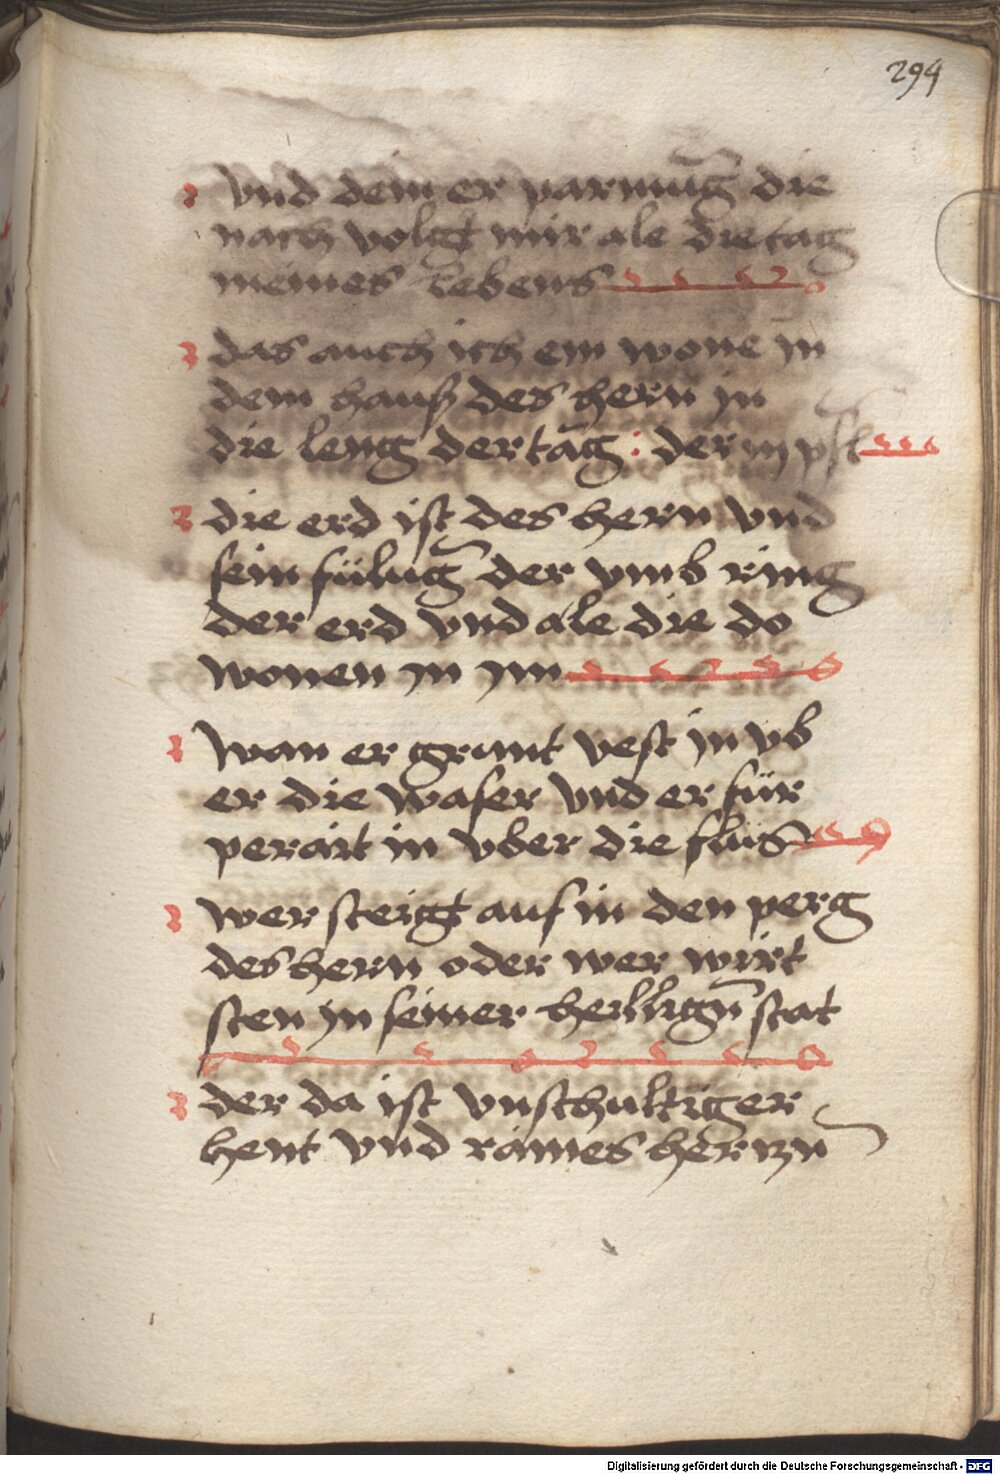 294
vnd dein er parmūg die
nach volgt mir ale die tag
meines lebens
das auch ich ein wone in
dem hauß des hern in
die leng der tag : der psl
die erd ist des hern vnd
sein fülūg der vmb ring
der erd vnd ale die do
wonen in im
wan er grunt vest in vb
er die waser vnd er für
perait in vber die flüs
wer steigt auf in den perg
des hern oder wer wirt
sten in seiner heiligñ stat
der da ist vnschultiger
hent vnd raines herczn
Digitalisierung gefördert durch die Deutsche Forschungsgemeinschaft - DFG